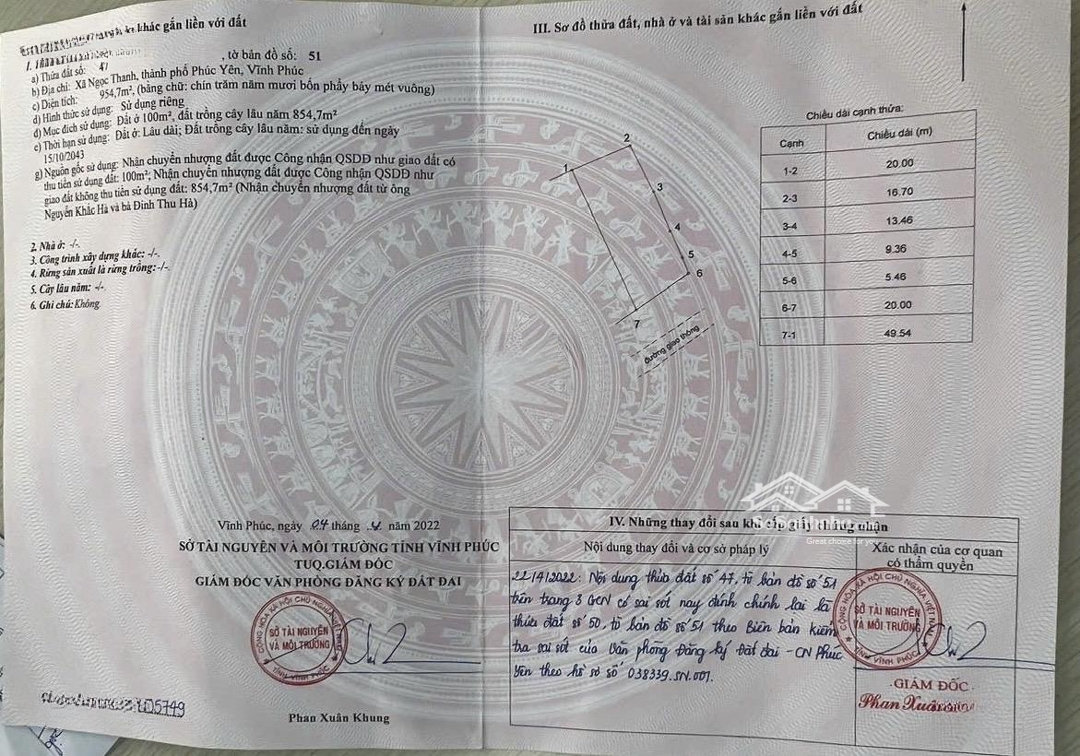 khác gắn liền với đất
a) Thửa đất số: 47 , tờ bản đồ số: 51
b) Địa chỉ: Xã Ngọc Thanh, thành phố Phúc Yên, Vĩnh Phúc
c) Diện tích: 954,7m², (bằng chữ: chín trăm năm mươi bốn phẩy bảy mét vuông)
d) Hình thức sử dụng: Sử dụng riêng
đ) Mục đích sử dụng: Đất ở 100m², đất trồng cây lâu năm 854,7m²
e) Thời hạn sử dụng: Đất ở: Lâu dài; Đất trồng cây lâu năm: sử dụng đến ngày
15/10/2043
g) Nguồn gốc sử dụng: Nhận chuyển nhượng đất được Công nhận QSDĐ như giao đất có
thu tiền sử dụng đất: 100m²; Nhận chuyển nhượng đất được Công nhận QSDĐ như
giao đất không thu tiền sử dụng đất: 854,7m² (Nhận chuyển nhượng đất từ ông
Nguyễn Khắc Hà và bà Đinh Thu Hà)
2. Nhà ở: -/-.
3. Công trình xây dựng khác: -/-.
4. Rừng sản xuất là rừng trồng: -/-.
5. Cây lâu năm: -/-
6. Ghi chú: Không
Vĩnh Phúc, ngày 04 tháng 4 năm 2022
SỞ TÀI NGUYÊN VÀ MÔI TRƯỜNG TỈNH VĨNH PHÚC
TUQ.GIÁM ĐỐC
GIÁM ĐỐC VĂN PHÒNG ĐĂNG KÝ ĐẤT ĐAI
CỘNG HÒA XÃ HỘI CHỦ NGHĨA VIỆT NAM
SỞ TÀI NGUYÊN
VÀ MÔI TRƯỜNG
TỈNH VĨNH PHÚC
Phan Xuân Khung
III. Sơ đồ thửa đất, nhà ở và tài sản khác gắn liền với đất
1
2
3
4
5
6
7
đường giao thông
Chiều dài cạnh thửa:
Cạnh Chiều dài (m)
1-2 20.00
2-3 16.70
3-4 13.46
4-5 9.36
5-6 5.46
6-7 20.00
7-1 49.54
IV. Những thay đổi sau khi cấp giấy chứng nhận
Nội dung thay đổi và cơ sở pháp lý
Xác nhận của cơ quan
có thẩm quyền
22/4/2022: Nội dung thửa đất số 47, tờ bản đồ số 51
trên trang 3 GCN có sai sót nay đính chính lại là
thửa đất số 50, tờ bản đồ số 51 theo Biên bản kiểm
tra sai sót của Văn phòng Đăng ký Đất đai - CN Phúc
Yên theo hồ sơ số 038339.SN.001.
CỘNG HÒA XÃ HỘI CHỦ NGHĨA VIỆT NAM
SỞ TÀI NGUYÊN
VÀ MÔI TRƯỜNG
TỈNH VĨNH PHÚC
GIÁM ĐỐC
Phan Xuân